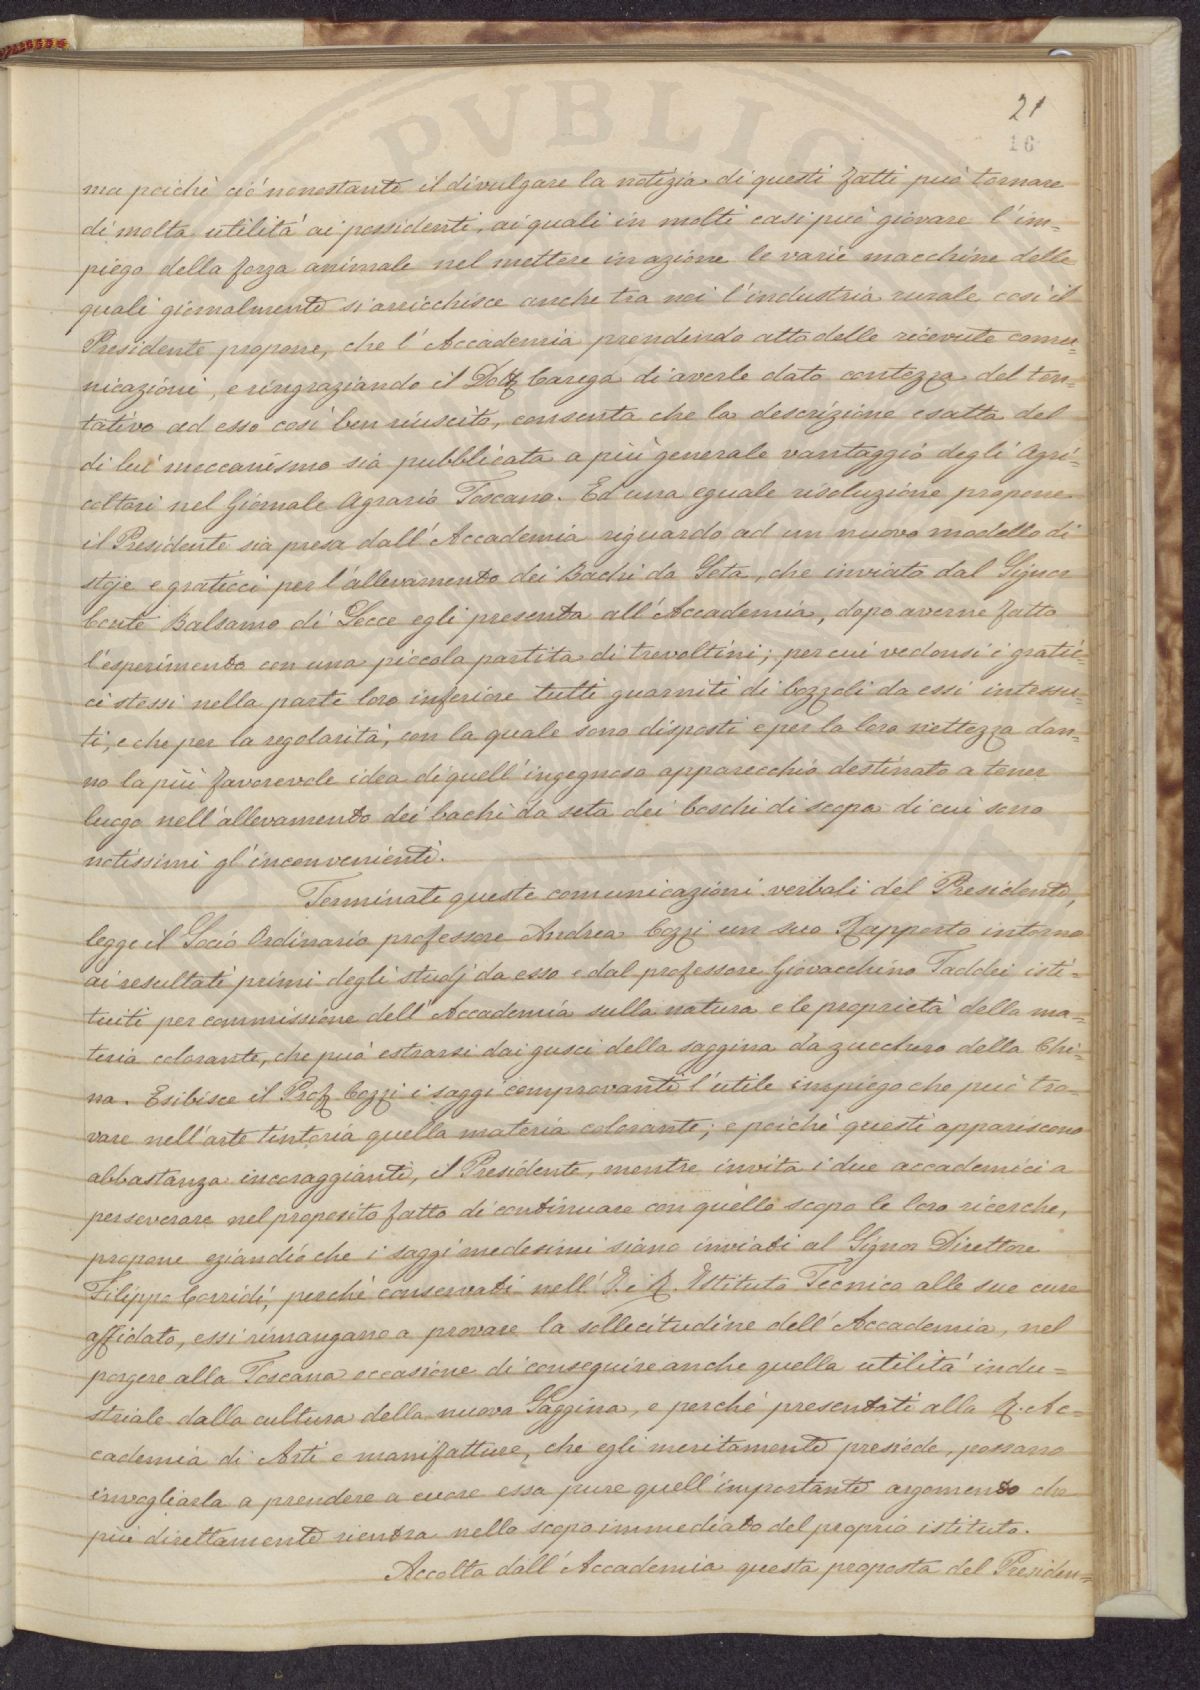 PVBLIC
21
16
ma poichè ciò nonostante il divulgare la notizia di questi fatti può tornare
di molta utilità ai possidenti, ai quali in molti casi può giovare l'im=
piego della forza animale nel mettere in azione le varie macchine delle
quali giornalmente si arricchisce anche tra noi l'industria rurale, così il
Presidente propone, che l'Accademia prendendo atto delle ricevute comu=
nicazioni, e ringraziando il Dott Carega di averle dato contezza del ten=
tativo ad esso così ben riuscito, consenta che la descrizione esatta del
di lui meccanismo sia pubblicata a più generale vantaggio degli Agri=
coltori nel Giornale Agrario Toscano. Ed una eguale risoluzione propone
il Presidente sia presa dall'Accademia riguardo ad un nuovo modello di
stoje e graticci per l'allevamento dei Bachi da Seta, che inviato dal Signor
Conte Balsamo di Lecce egli presenta all'Accademia, dopo averne fatto
l'esperimento con una piccola partita di trevoltini; per cui vedonsi i gratic=
ci stessi nella parte loro inferiore tutti guarniti di bozzoli da essi intessu=
ti, e che per la regolarità, con la quale sono disposti e per la loro nettezza dan=
no la più favorevole idea di quell'ingegnoso apparecchio destinato a tener
luogo nell'allevamento dei bachi da seta dei boschi di scopa di cui sono
notissimi gl'inconvenienti.
Terminate queste comunicazioni verbali del Presidente,
legge il Socio Ordinario professore Andrea Cozzi un suo Rapporto intorno
ai resultati primi degli studj da esso e dal professore Giovacchino Taddei isti=
tuiti per commissione dell'Accademia sulla natura e le proprietà della ma=
teria colorante, che può estrarsi dai gusci della saggina da zucchero della Chi=
na. Esibisce il Prof Cozzi i saggi comprovanti l'utile impiego che può tro=
vare nell'arte tintoria quella materia colorante; e poichè questi appariscono
abbastanza incoraggianti, il Presidente, mentre invita i due accademici a
perseverare nel proposito fatto di continuare con quello scopo le loro ricerche,
propone eziandio che i saggi medesimi siano inviati al Signor Direttore
Filippo Corridi, perchè conservati nell'I. e R. Istituto Tecnico alle sue cure
affidato, essi rimangano a provare la sollecitudine dell'Accademia, nel
porgere alla Toscana occasione di conseguire anche quella utilità indu=
striale dalla cultura della nuova Saggina, e perchè presentati alla R. Ac=
cademia di Arti e manifatture, che egli meritamente presiede, possano
invogliarla a prendere a cuore essa pure quell'importante argomento che
più direttamente rientra nello scopo immediato del proprio istituto.
Accolta dall'Accademia questa proposta del Presiden=